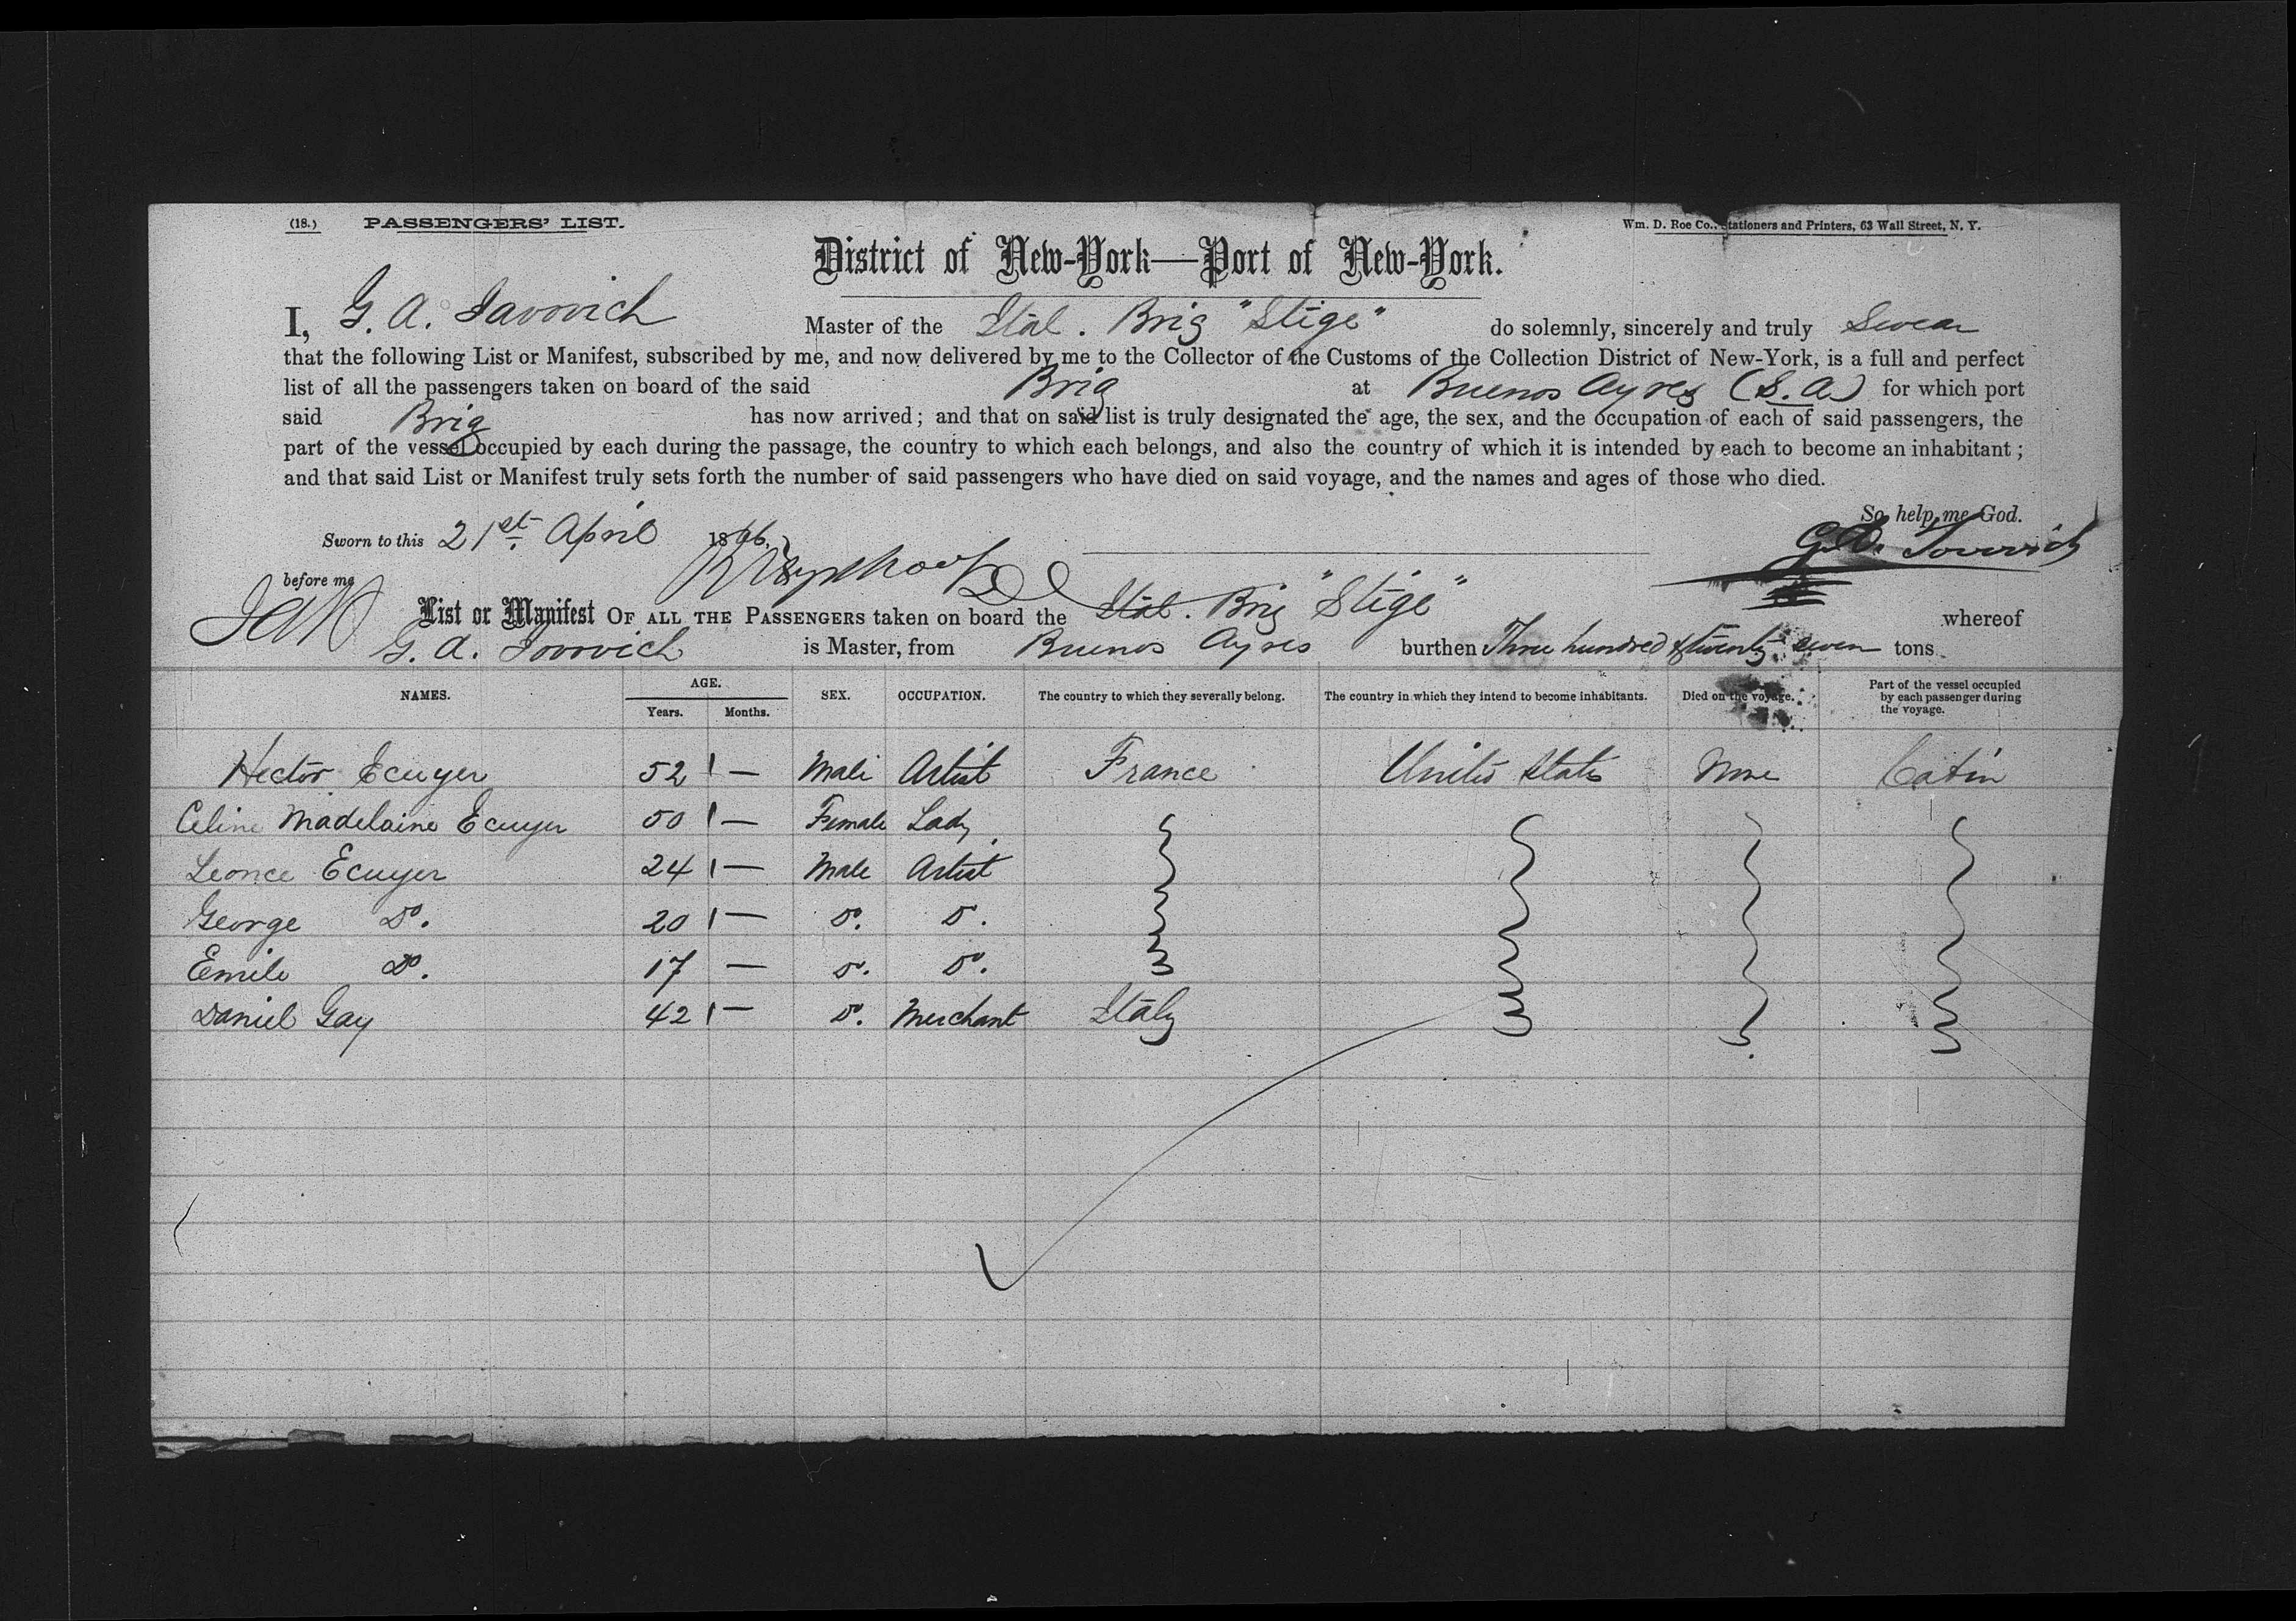 (18.) PASSENGERS' LIST. Wm. D. Roe Co., Stationers and Printers, 63 Wall Street, N. Y.
District of New-York—Port of New-York.
I, G. A. Iavovich Master of the Ital. Brig "Stige" do solemnly, sincerely and truly Swear
that the following List or Manifest, subscribed by me, and now delivered by me to the Collector of the Customs of the Collection District of New-York, is a full and perfect
list of all the passengers taken on board of the said Brig at Buenos Ayres (S.A) for which port
said Brig has now arrived; and that on said list is truly designated the age, the sex, and the occupation of each of said passengers, the
part of the vessel occupied by each during the passage, the country to which each belongs, and also the country of which it is intended by each to become an inhabitant;
and that said List or Manifest truly sets forth the number of said passengers who have died on said voyage, and the names and ages of those who died.
So help me God.
Sworn to this 21st April 18 G.A. Iovovich
before me
List or Manifest OF ALL THE PASSENGERS taken on board the Ital. Brig "Stige" whereof
G. A. Iovovich is Master, from Buenos Ayres burthen Three hundred & twenty seven tons
NAMES. AGE. Years. Months. SEX. OCCUPATION. The country to which they severally belong. The country in which they intend to become inhabitants. Died on the voyage. Part of the vessel occupied by each passenger during the voyage.
Hector Ecuyer 52 — Male Artist France United States None Cabin
Celine Madelaine Ecuyer 50 — Female Lady
Leonce Ecuyer 24 — Male Artist
George Do. 20 — Do. Do.
Emile Do. 17 — Do. Do.
Daniel Gay 42 — Do. Merchant Italy